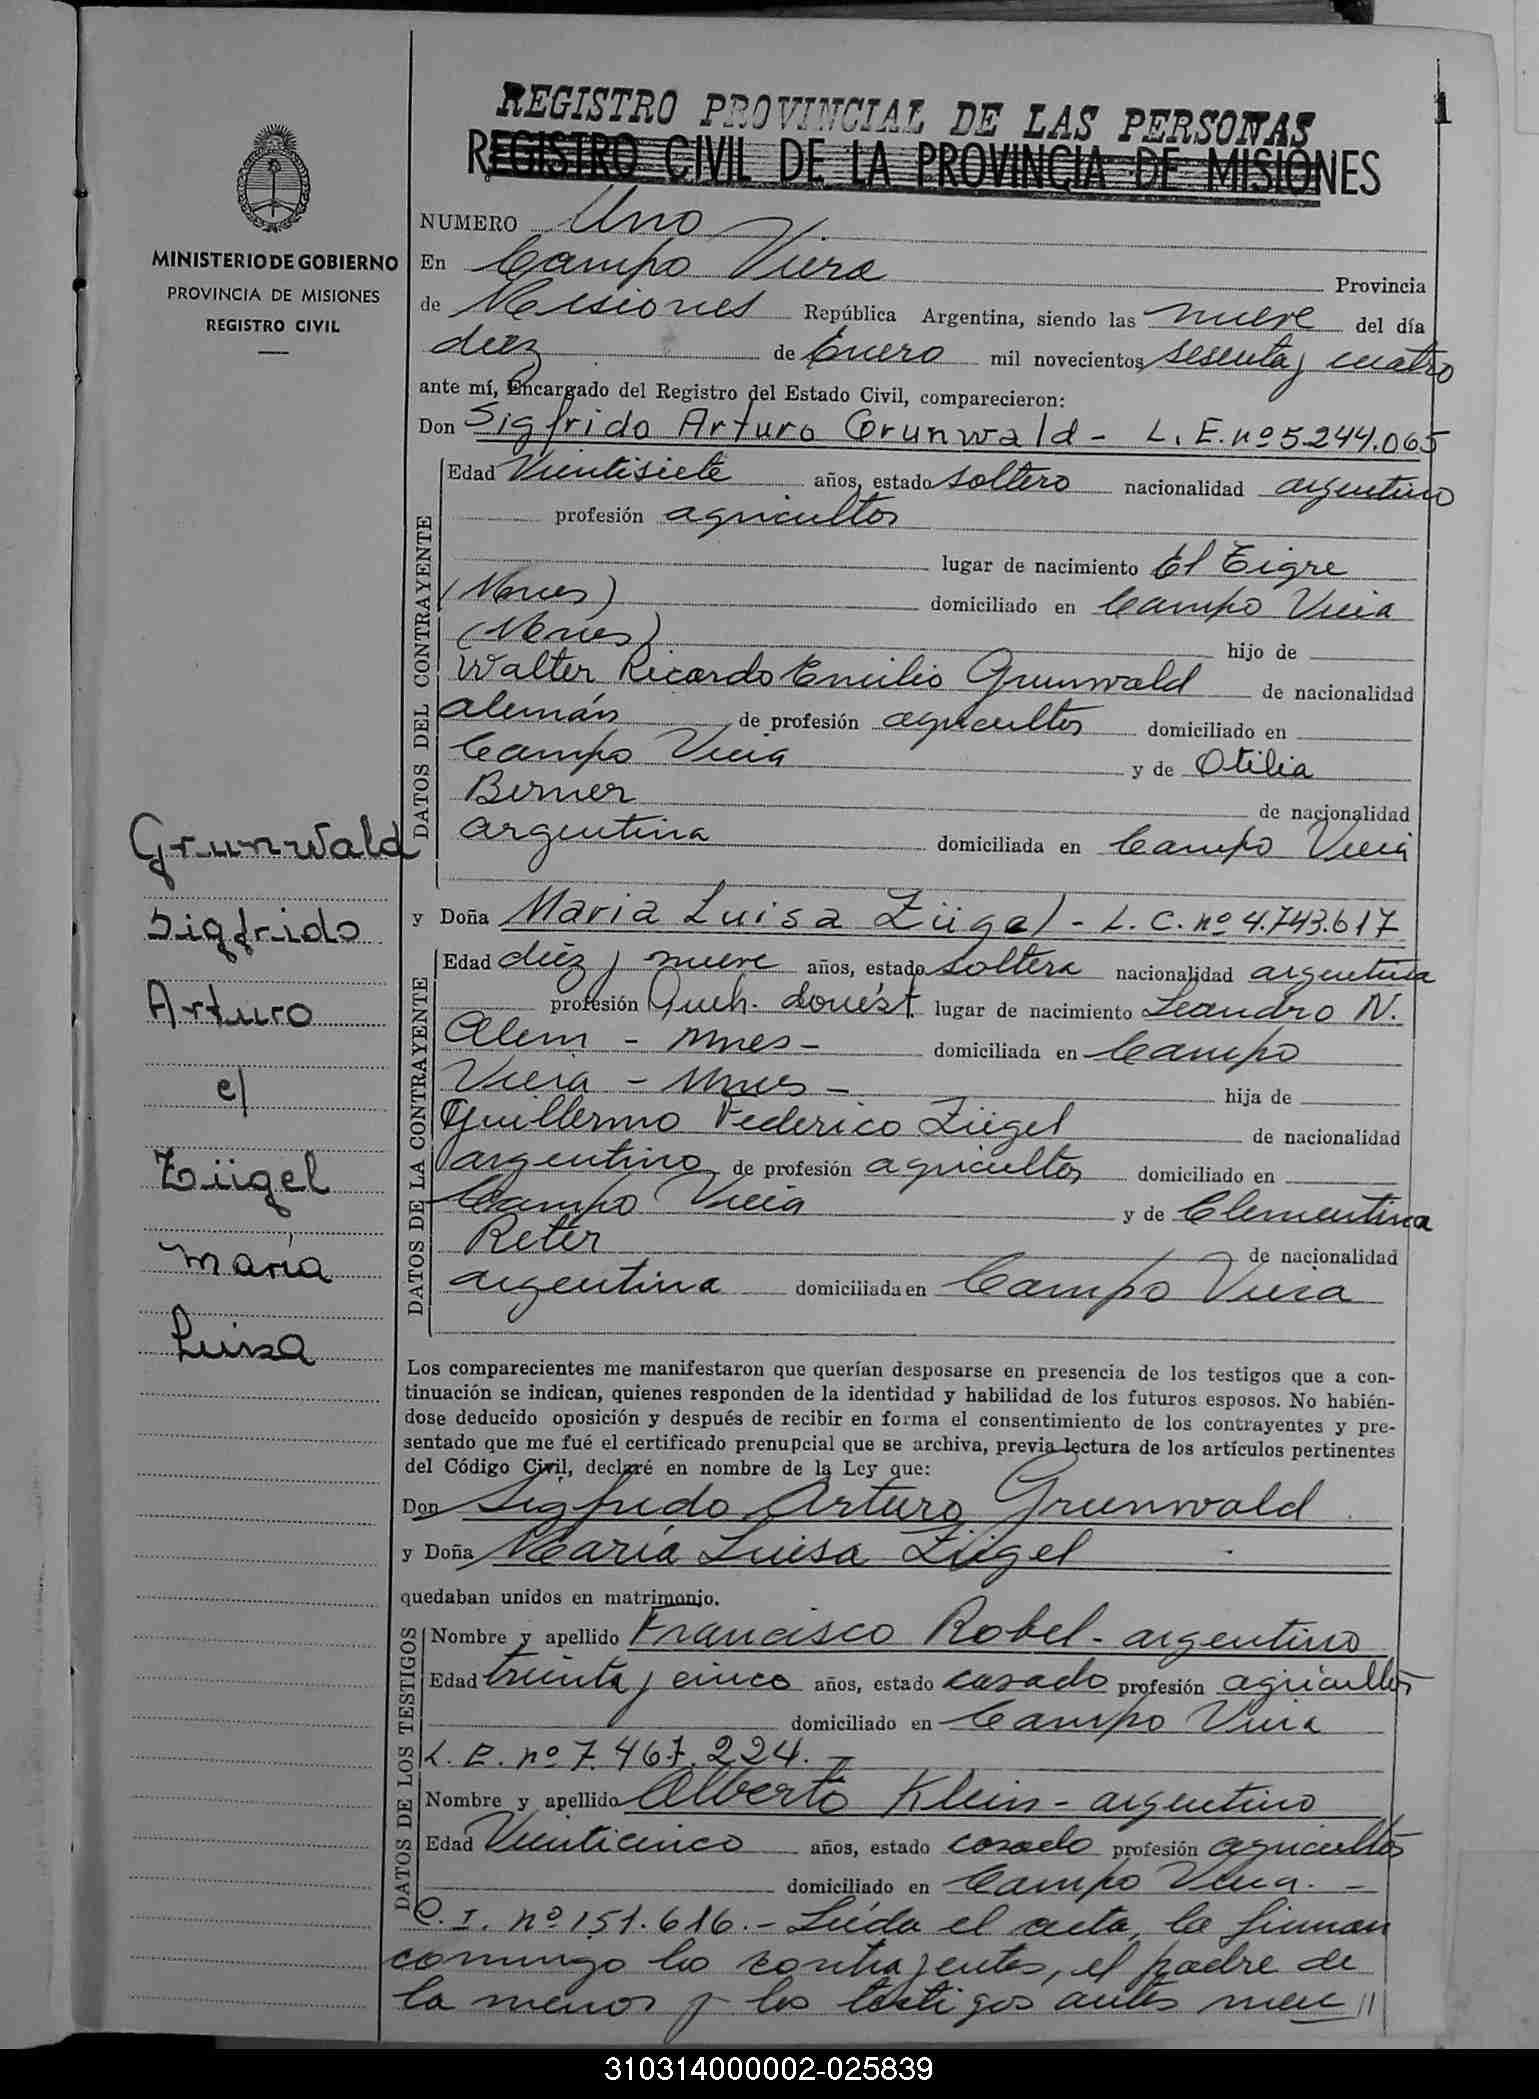 1
REGISTRO PROVINCIAL DE LAS PERSONAS
REGISTRO CIVIL DE LA PROVINCIA DE MISIONES
MINISTERIO DE GOBIERNO
PROVINCIA DE MISIONES
REGISTRO CIVIL
Grunwald
Sigfrido
Arturo
c/
Zügel
María
Luisa
NUMERO Uno
En Campo Viera Provincia
de Misiones República Argentina, siendo las nueve del día
diez de Enero mil novecientos sesenta y cuatro
ante mí, Encargado del Registro del Estado Civil, comparecieron:
Don Sigfrido Arturo Grunwald - L. E. nº 5.244.065
DATOS DEL CONTRAYENTE
Edad Veintisiete años, estado soltero nacionalidad argentino
profesión agricultor
lugar de nacimiento El Tigre
(Mnes) domiciliado en Campo Viera
(Mnes) hijo de
Walter Ricardo Emilio Grunwald de nacionalidad
alemán de profesión agricultor domiciliado en
Campo Viera y de Otilia
Berner de nacionalidad
argentina domiciliada en Campo Viera
y Doña Maria Luisa Zügel - L. C. nº 4.743.617
DATOS DE LA CONTRAYENTE
Edad diez y nueve años, estado soltera nacionalidad argentina
profesión Queh. domést. lugar de nacimiento Leandro N.
Alem - Mnes - domiciliada en Campo
Viera - Mnes - hija de
Guillermo Federico Zügel de nacionalidad
argentino de profesión agricultor domiciliado en
Campo Viera y de Clementina
Reter de nacionalidad
argentina domiciliada en Campo Viera
Los comparecientes me manifestaron que querían desposarse en presencia de los testigos que a con-
tinuación se indican, quienes responden de la identidad y habilidad de los futuros esposos. No habién-
dose deducido oposición y después de recibir en forma el consentimiento de los contrayentes y pre-
sentado que me fué el certificado prenupcial que se archiva, previa lectura de los artículos pertinentes
del Código Civil, declaré en nombre de la Ley que:
Don Sigfrido Arturo Grunwald
y Doña María Luisa Zügel
quedaban unidos en matrimonio.
DATOS DE LOS TESTIGOS
Nombre y apellido Francisco Robel - argentino
Edad treinta y cinco años, estado casado profesión agricultor
domiciliado en Campo Viera
L. E. nº 7.467.224. -
Nombre y apellido Alberto Klein - argentino
Edad Veinticinco años, estado casado profesión agricultor
domiciliado en Campo Viera. -
C. I. nº 151.616. - Leída el acta, la firman
conmigo los contrayentes, el padre de
la menor y los testigos antes men //
310314000002-025839